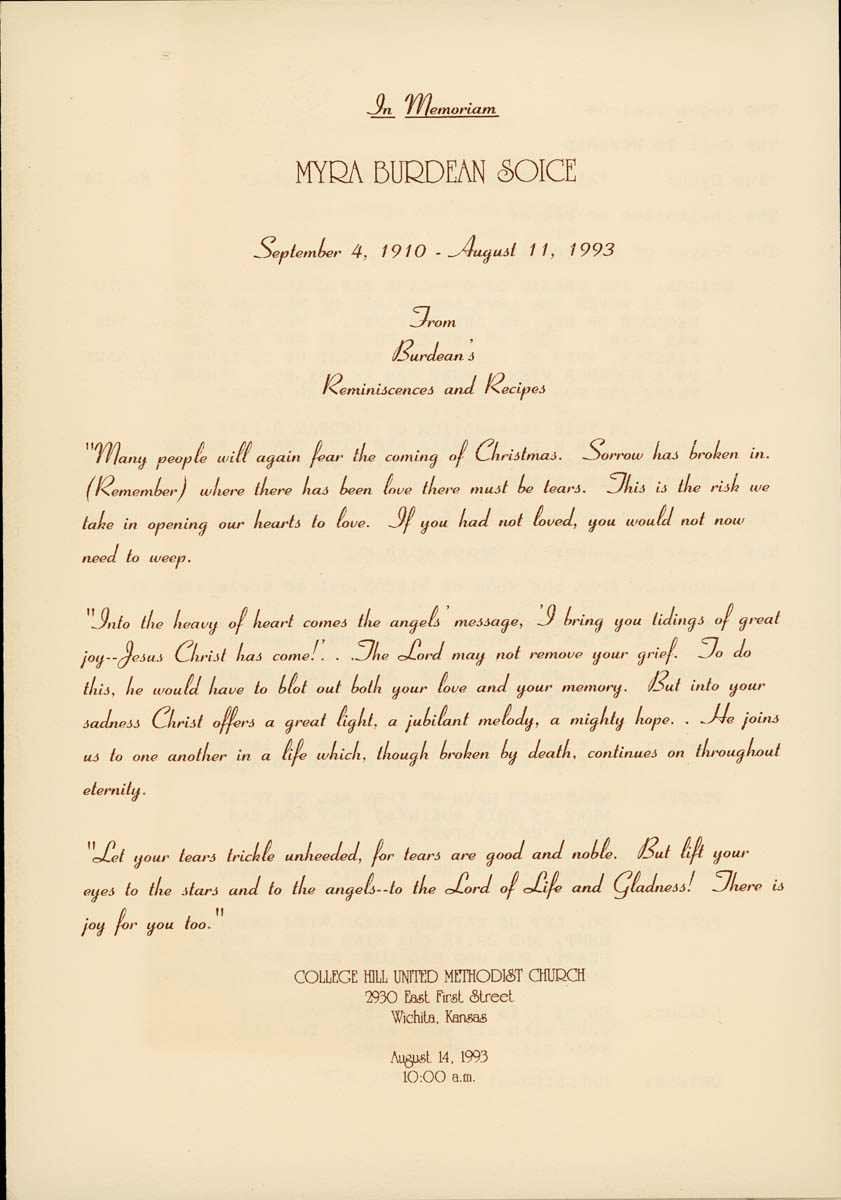 In Memoriam
MYRA BURDEAN SOICE
September 4, 1910 - August 11, 1993
From
Burdean's
Reminiscences and Recipes
"Many people will again fear the coming of Christmas. Sorrow has broken in.
(Remember) where there has been love there must be tears. This is the risk we
take in opening our hearts to love. If you had not loved, you would not now
need to weep.
"Into the heavy of heart comes the angels' message, 'I bring you tidings of great
joy--Jesus Christ has come!'. . .The Lord may not remove your grief. To do
this, he would have to blot out both your love and your memory. But into your
sadness Christ offers a great light, a jubilant melody, a mighty hope. . .He joins
us to one another in a life which, though broken by death, continues on throughout
eternity.
"Let your tears trickle unheeded, for tears are good and noble. But lift your
eyes to the stars and to the angels--to the Lord of Life and Gladness! There is
joy for you too."
COLLEGE HILL UNITED METHODIST CHURCH
2930 East First Street
Wichita, Kansas
August 14, 1993
10:00 a.m.